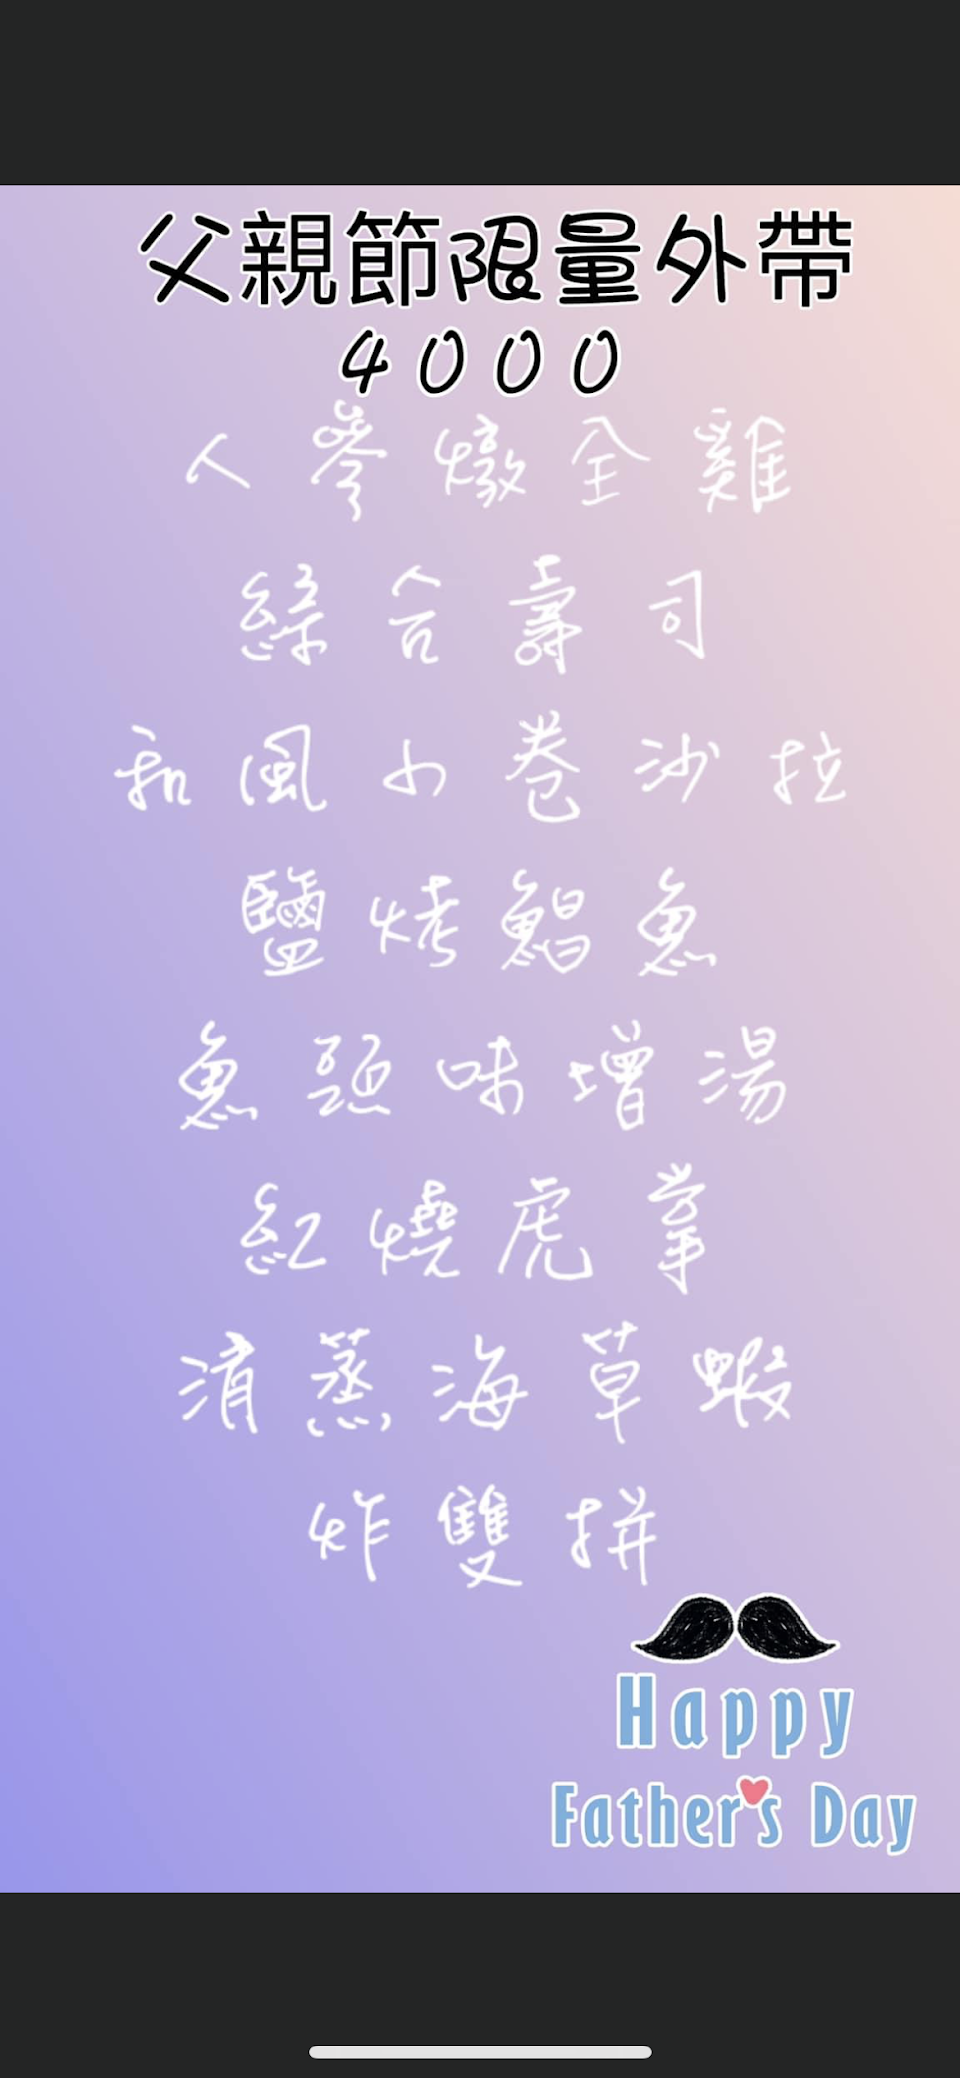 父親節限量外帶
4000
人參燉全雞
綜合壽司
和風小卷沙拉
鹽烤鯧魚
魚頭味增湯
紅燒虎掌
清蒸海草蝦
炸雙拼
Happy
Father's Day